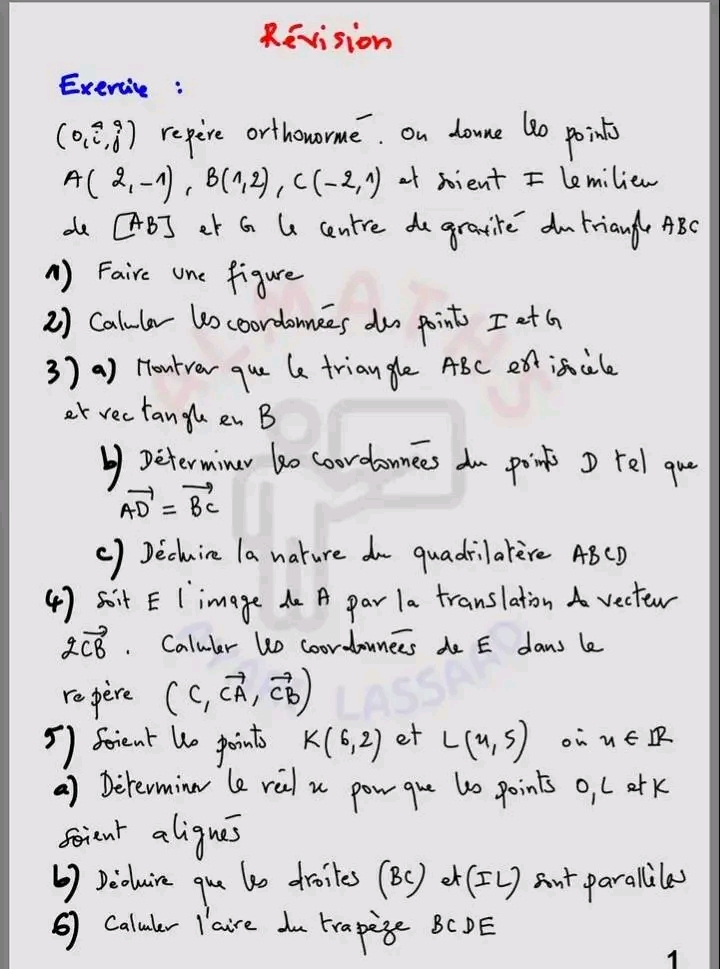 Révision
Exercice :
(O, i⃗, j⃗) repère orthonormé. On donne les points
A( 2,-1), B(1,2), C(-2,1) et soient I le milieu
de [AB] et G le centre de gravité du triangle ABC
1) Faire une figure
2) Calculer les coordonnées des points I et G
3) a) Montrer que le triangle ABC est isocèle
et rectangle en B
b) Déterminer les coordonnées du points D tel que
A͞D⃗ = B͞C⃗
c) Déduire la nature du quadrilatère ABCD
4) Soit E l'image de A par la translation de vecteur
2CB⃗. Calculer les coordonnées de E dans le
repère (C, CA⃗, CB⃗)
5) Soient les points K(6,2) et L(x,5) où x ∈ IR
a) Déterminer le réel x pour que les points O, L et K
soient alignés
b) Déduire que les droites (BC) et (IL) sont parallèles
6) Calculer l'aire du trapèze BCDE
ALMATHS
AYARI LASSAAD
1